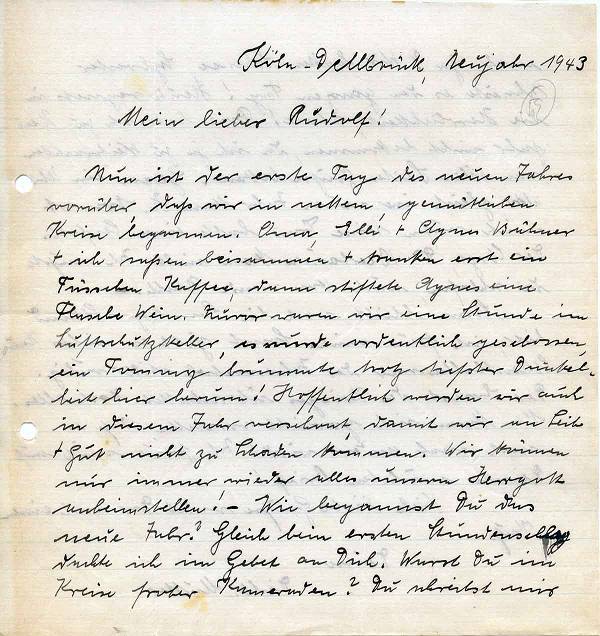 Köln-Dellbrück, Neujahr 1943
Mein lieber Rudolf!
Nun ist der erste Tag des neuen Jahres
vorüber, daß wir in nettem, gemütlichen
Kreise begannen. Oma, Elli + Agnes Bühner
+ ich saßen beisammen + tranken erst ein
Tässchen Kaffee, dann stiftete Agnes eine
Flasche Wein. Zuvor waren wir eine Stunde im
Luftschutzkeller, es wurde ordentlich geschossen,
ein Tommy brummte trotz tiefster Dunkel-
heit hier herum! Hoffentlich werden wir auch
in diesem Jahr verschont, damit wir an Leib
+ Gut nicht zu Schaden kommen. Wir können
nur immer wieder alles unserm Herrgott
anheimstellen! – Wie begannst Du das
neue Jahr? Gleich beim ersten Stundenschlag
dachte ich im Gebet an Dich. Warst Du im
Kreise froher Kameraden? Du schreibst mir